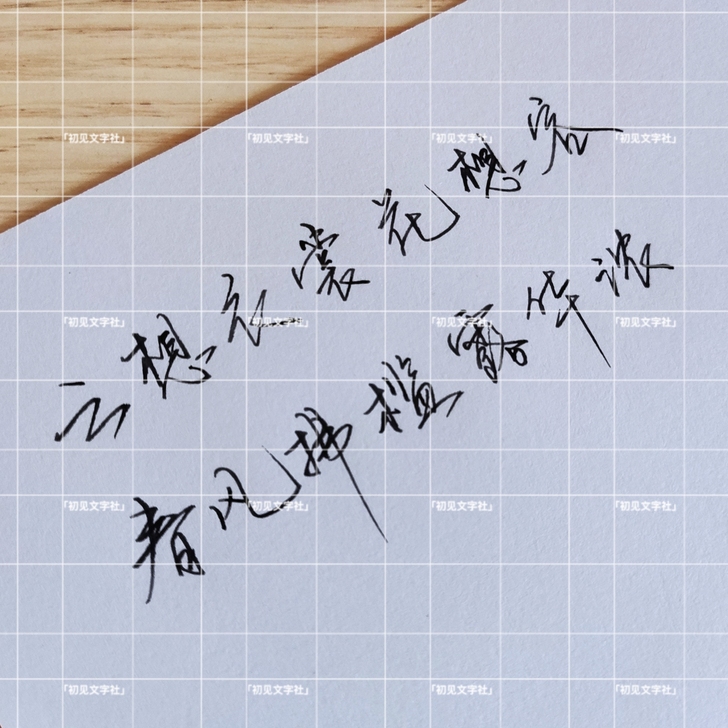 云想衣裳花想容
春风拂槛露华浓
「初见文字社」 「初见文字社」 「初见文字社」 「初见文字社」
「初见文字社」 「初见文字社」 「初见文字社」 「初见文字社」
「初见文字社」 「初见文字社」 「初见文字社」 「初见文字社」
「初见文字社」 「初见文字社」 「初见文字社」 「初见文字社」